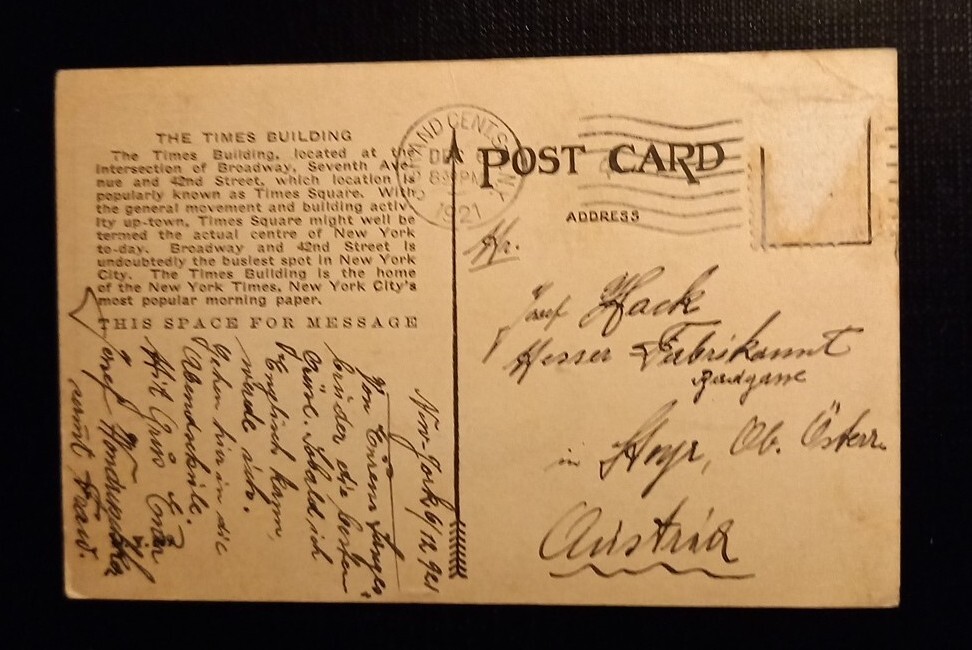 THE TIMES BUILDING
The Times Building, located at the
intersection of Broadway, Seventh Ave-
nue and 42nd Street, which location is
popularly known as Times Square. With
the general movement and building activ-
ity up-town, Times Square might well be
termed the actual centre of New York
to-day. Broadway and 42nd Street is
undoubtedly the busiest spot in New York
City. The Times Building is the home
of the New York Times, New York City's
most popular morning paper.
THIS SPACE FOR MESSAGE
New-York 6/12.921
Von Eurem Sanges-
bruder die besten
Grüße. Sobald ich
Englisch kann,
werde ich
gehen hier in die
Abendschule.
Mit Gruß Euer
samt Frau.
GRAND CENTRAL
DE
8 PM
1921
POST CARD
ADDRESS
Hr.
Josef Hack
Messer Fabrikannt
in Steyr, Ob. Österr.
Austria